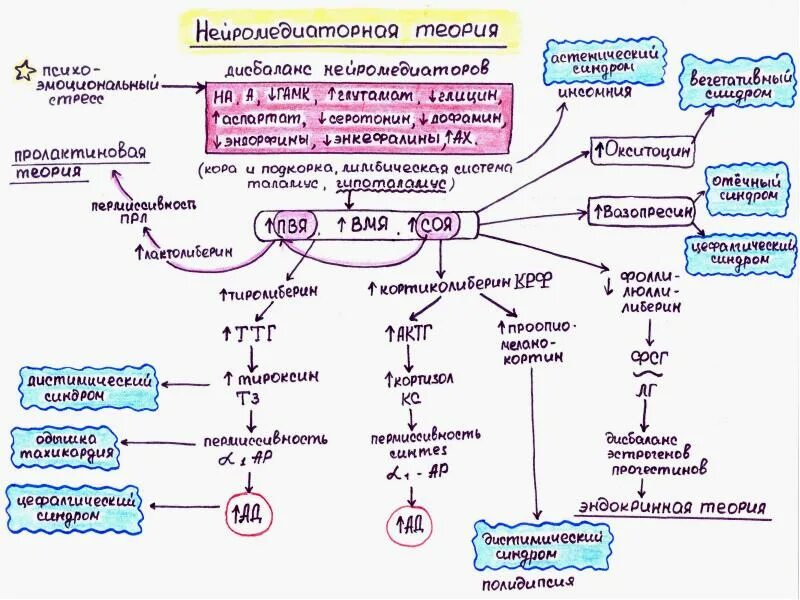 Нейромедиаторная теория
психо-
эмоциональный
стресс
дисбаланс нейромедиаторов
НА, А, ↓ГАМК, ↑глутамат, ↓глицин,
↑аспартат, ↓серотонин, ↓дофамин,
↓эндорфины, ↓энкефалины, ↑АХ.
(кора и подкорка, лимбическая система
таламус, гипоталамус)
астенический
синдром
инсомния
вегетативный
синдром
↑Окситоцин
отёчный
синдром
↑Вазопресин
цефалгический
синдром
пролактиновая
теория
пермиссивность
ПРЛ
↑лактолиберин
↑ПВЯ, ↑ВМЯ, ↑СОЯ
↑тиролиберин
↑ТТГ
↑тироксин
Т3
пермиссивность
α1 АР
↑АД
дистимический
синдром
одышка
тахикардия
цефалгический
синдром
↑кортиколиберин КРФ
↑АКТГ
↑кортизол
КС
пермиссивность
синтез
α1-АР
↑АД
↑проопио-
мелано-
кортин
дистимический
синдром
полидипсия
↓фолли-
люлли-
либерин
ФСГ
ЛГ
дисбаланс
эстрогенов
прогестинов
эндокринная теория